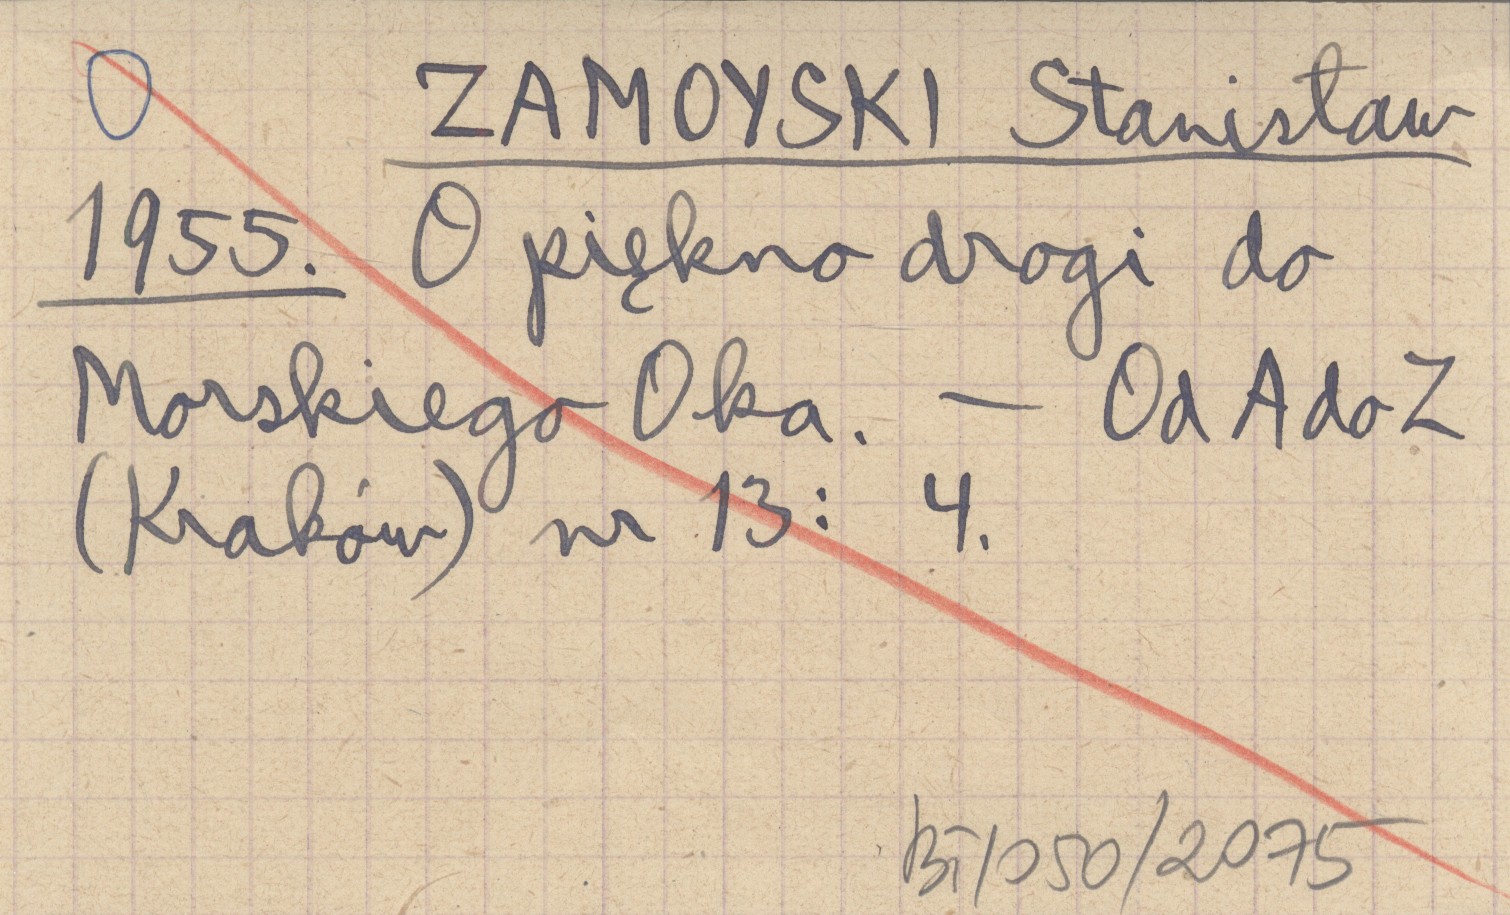 O ZAMOYSKI Stanisław
1955. O piękno drogi do
Morskiego Oka. — Od A do Z
(Kraków) nr 13: 4.
BT/050/2075